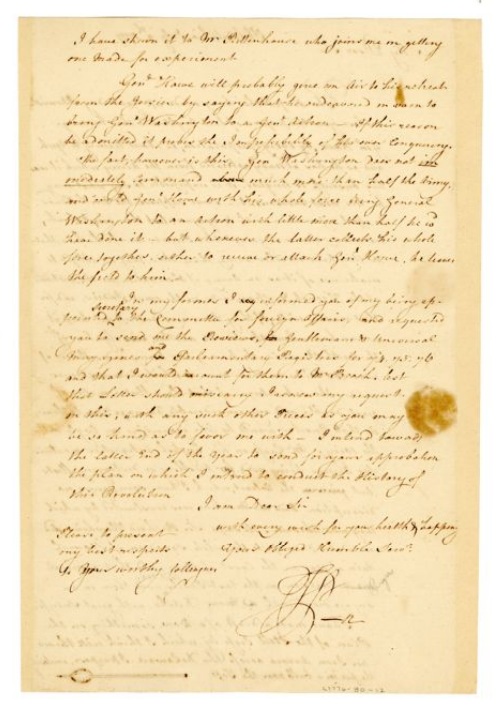 I have shewn it to Mr Rittenhouse who joins me in getting
one made for experiment
Genl Howe will probably give an air to his retreat
from the Jersies by saying that he endeavoured in vain to
bring Genl Washington to a Genl Action — If this reason
be admitted it proves the Improbability of his ever Conquering.
The fact, however is this, Genl Washington does not
immediately Command much more than half the Army,
and could Genl Howe with his whole force bring General
Washington to an action with little more than half he wd
have done it — but whenever the latter collects his whole
force together, either to receive or attack Genl Howe, he leaves
the field to him
In my former I informed you of my being ap-
pointed Secretary to the Committee for foreign Affairs, and requested
you to send me the Reviews, Gentlemans & Universal
Magazines Parliamentary Registers for 74. 75. 76
and that I would account for them to Mr Beach, lest
that Letter should miscarry I mention my request
in this, with any such other Pieces as you may
be so kind as to favor me with — I intend towards
the latter End of the Year to send for your approbation
the plan on which I intend to conduct the History of
this Revolution
I am Dear Sir
with every wish for your health & happiness
Please to present
my best respects
to Your worthy Colleagues
Your Obliged Humble Servt